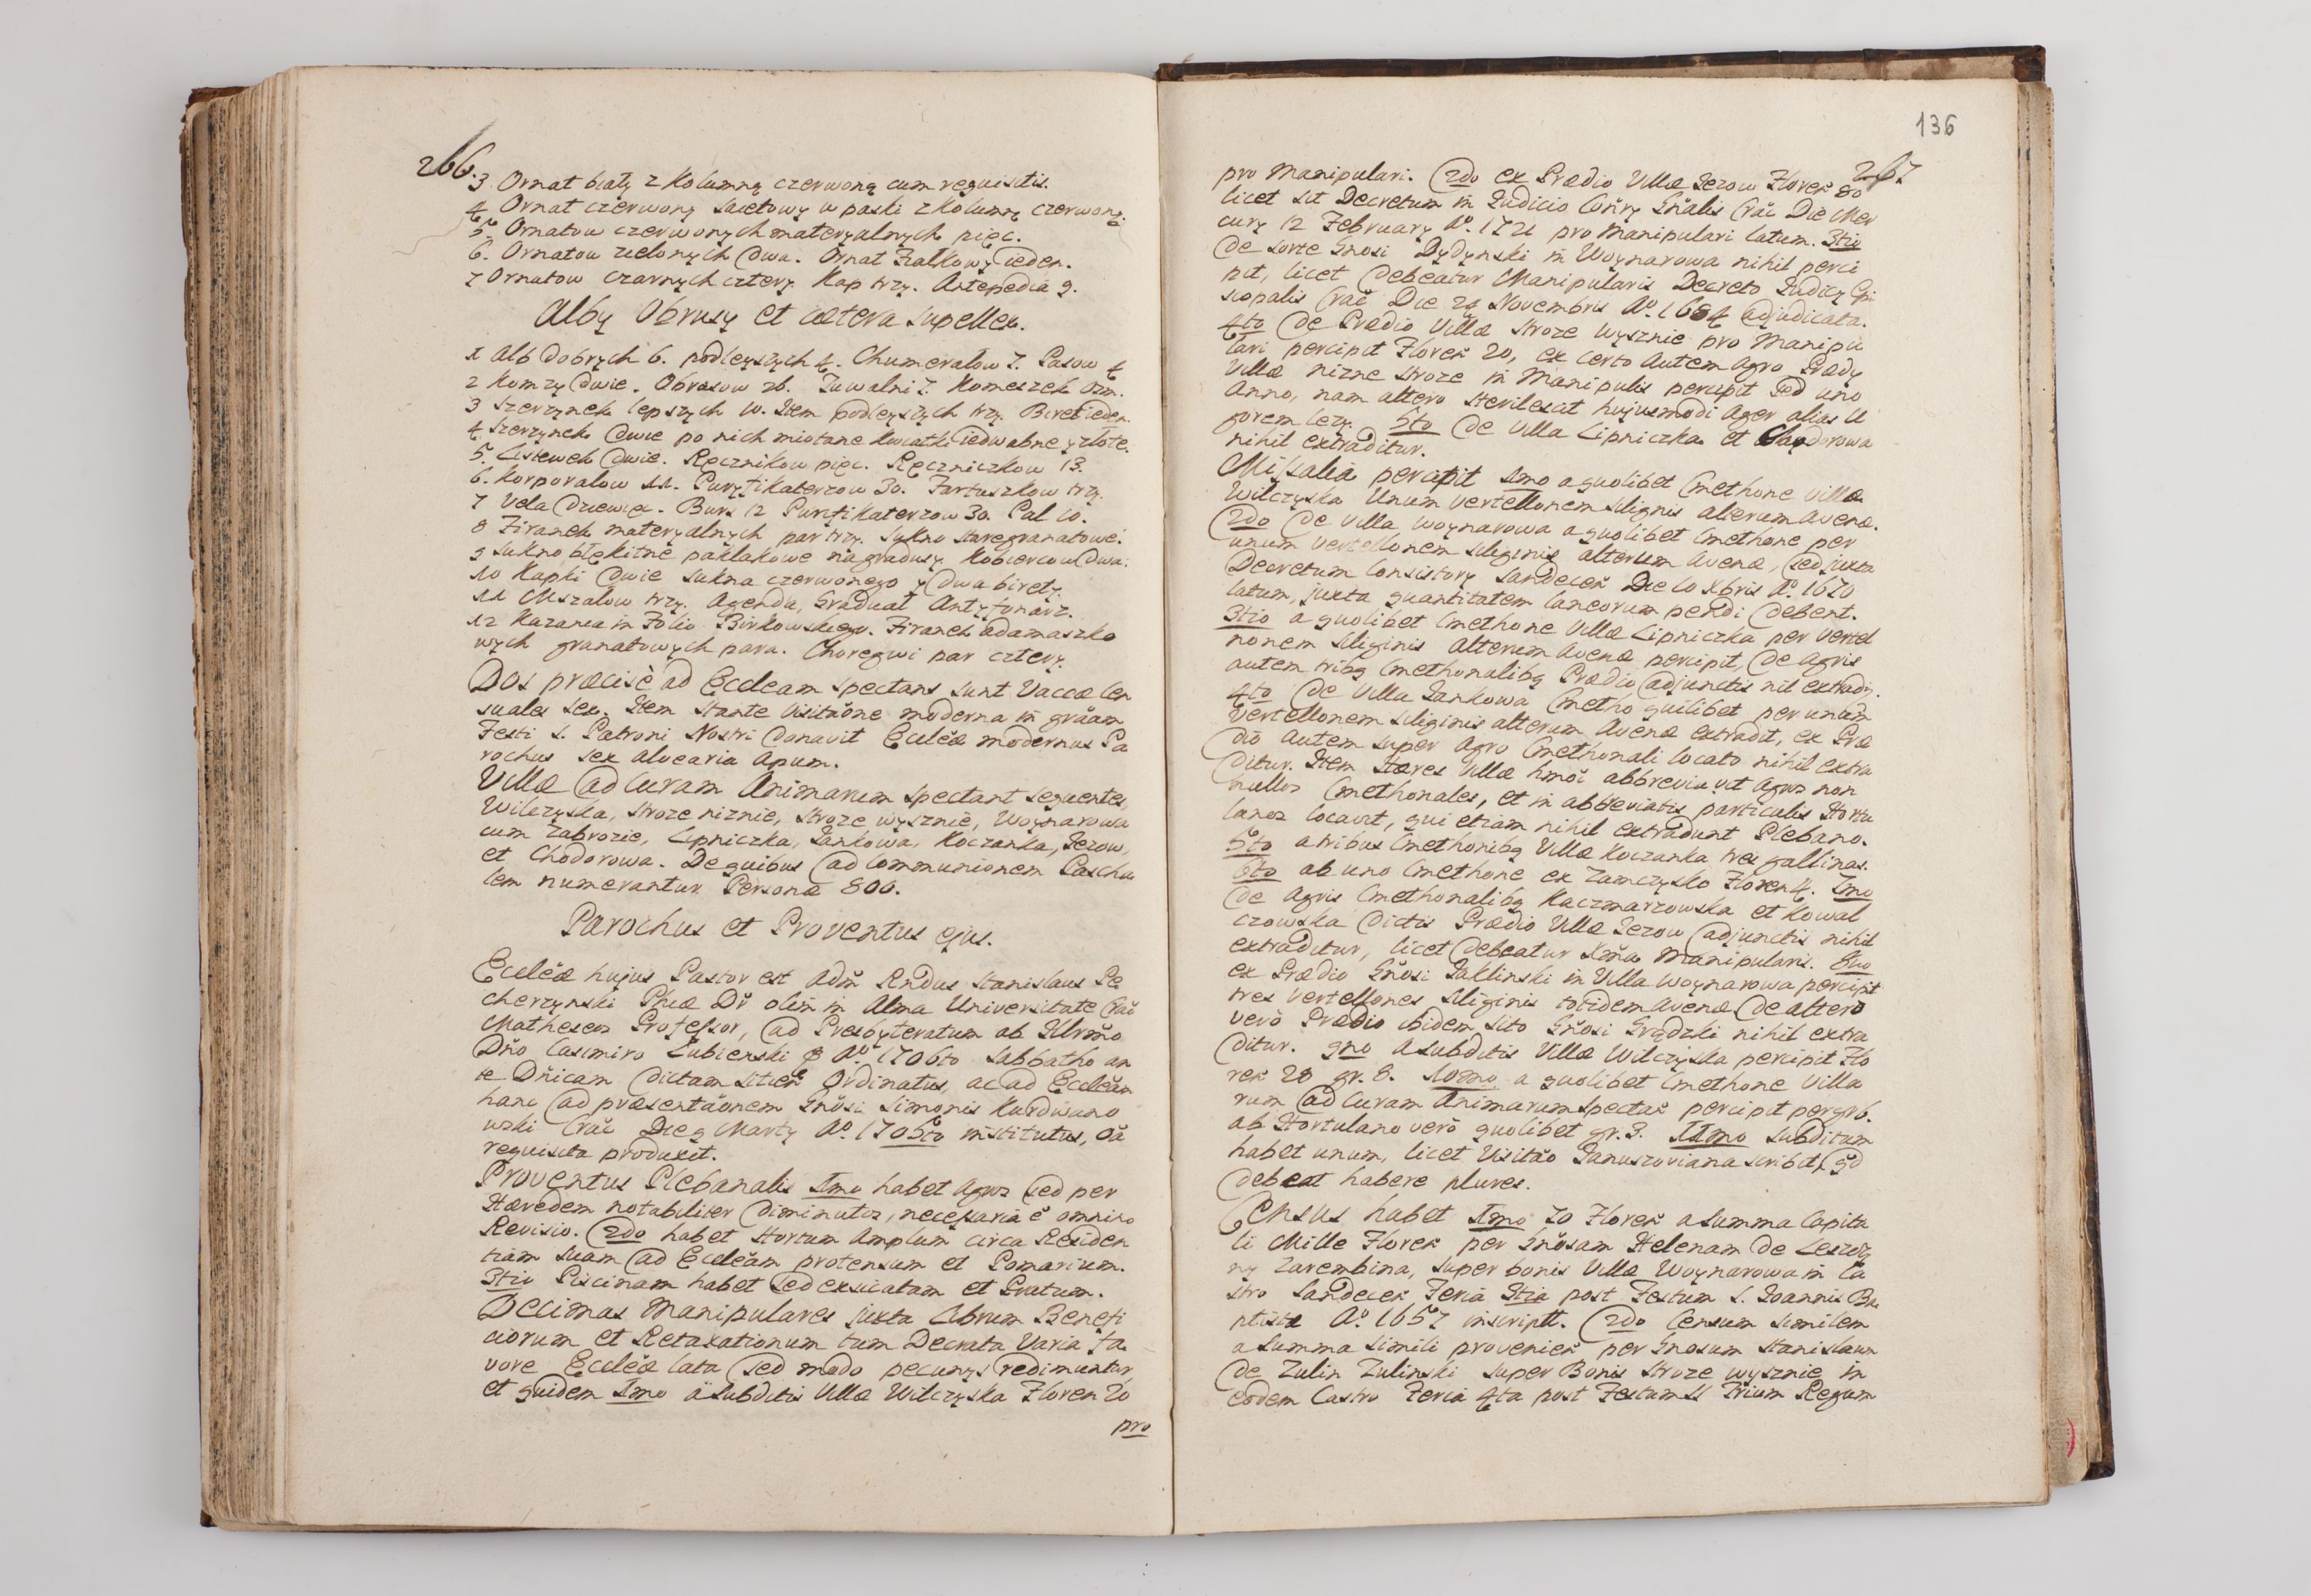 266.
3. Ornat biały z kolumną czerwoną cum requisitis.
4 Ornat czerwony sacetowy w paski z kolumną czerwoną.
5. Ornatow czerwonych materyalnych pięc.
6. Ornatow zielonych dwa. Ornat Fialkowy ieden.
7 Ornatow czarnych cztery. Kap trzy. Antepedia 9.
Alby Obrusy et cætera supellex.
1 Alb dobrych 6. podleyszych 4. Chumerałow 7. Pasow 4
2 Komzy dwie. Obrusow 26. Tuwalni 7. Komeszek osm.
3 Szerzynek lepszych 10. Item podleyszych trzy. Biret ieden.
4 Szerzynek dwie po nich miotane kwiatki iedwabne y złote.
5. Listewek dwie. Ręcznikow pięc. Ręczniczkow 13.
6. Korporałow 11. Puryfikaterzow 30. Fartuszkow trzy.
7 Vela dziewięc. Burs 12 Puryfikaterzow 30. Pal 10.
8 Firanek materyalnych par trzy. Sukno stare granatowe.
9 Sukno błękitne paklakowe na gradusy. Kobiercow dwa.
10 Kapki dwie sukna czerwonego y dwa birety.
11 Mszałow trzy. Agenda, Graduał Antyfonarz.
12 Kazania in Folio Birkowskiego. Firanek adamaszko
wych granatowych para. Choręgwi par cztery.
Dos præcisè ad Eccleam spectans sunt Vaccæ Cen
suales sex. Item stante Visitaõne moderna in grãam
Festi S. Patroni Nostri donavit Eccleæ modernus Pa
rochus sex alvearia Apum.
Villæ ad Curam Animarum spectant sequentes
Wilczyska, Stroze niznie, Stroze wysznie, Woynarowa
cum Zabrozie, Lipniczka, Jankowa, Koczanka, Jezow,
et Chodorowa. De quibus ad Communionem Pascha
lem numerantur Personæ 800.
Parochus et Proventus ejus.
Eccleæ hujus Pastor est Adm̃ Rndus Stanislaus Pe
cherzynski Phiæ Dr̃ olim in Alma Universitate Crac̃
Matheseos Professor, ad Presbyteratum ab Illrm̃o
Dño Casimiro Łubienski A°. 1706to Sabbatho an
te Dñicam dictam Ordinatus, ac ad Ecclẽam
hanc ad præsentãonem Gnõsi Simonis Kurdwano
wski Crac̃ Die 9 Marty A°. 1705to institutus, oã
requisita produxit.
Proventus Plebanalis 1mo habet Agros sed per
Hæredem notabiliter diminutos, necessaria ẽ omnino
Revisio. 2do habet Hortum Amplum circa Residen
tiam suam ad Ecclẽam protensum et Pomarium.
3tio Piscinam habet sed exsicatam et Pratum.
Decimas Manipulares juxta Librum Benefi
ciorum et Retaxationum tum Decreta Varia fa
vore Eccleæ lata sed modo pecunys redimuntur,
et quidem 1mo à Subditis Villæ Wilczyska Floren 20
pro
136
267
pro Manipulari. 2do ex Prædio Villæ Jezow Floreñ 80
licet sit Decretum in Judicio Coñry Gñalis Crac̃ Die Mer
cury 12 February A°. 1721 pro Manipulari latum. 3tio
de sorte Gnosi Dydynski in Woynarowa nihil perci
pit, licet debeatur Manipularis Decreto Judicy Epi
scopalis Crac̃ Die 24 Novembris A°. 1684 adjudicata.
4to de Prædio Villæ Stroze Wysznie pro Manipu
lari percipit Floreñ 20, ex certo autem Agro Prædy
Villæ nizne Stroze in Manipulis percipit sed uno
Anno, nam altero sterilescit hujusmodi Ager alias U
gorem lezy. 5to de Villa Lipniczka et Chodorowa
nihil extraditur.
Missalia percipit 1mo a quolibet Cmethone Villæ
Wilczyska Unum vertellonem siliginis alterum Avenæ.
2do de Villa Woynarowa a quolibet Cmethone per
unum vertellonem siliginis alterum Avenæ, sed juxta
Decretum Consistory Sandeceñ Die 10 Xbris A°. 1670
latum, juxta quantitatem laneorum pendi debent.
3tio a quolibet Cmethone Villæ Lipniczka per Vertel
nonem siliginis alterum Avenæ percipit, de Agris
autem tribq Cmethonalibq Prædio adjunctis nil extradr.
4to de Villa Jankowa Cmetho quilibet per unum
Vertellonem siliginis alterum Avenæ extradit, ex Præ
dio autem super Agro Cmethonali locato nihil extra
ditur. Item Hæres Villæ hmõi abbreviavit Agros non
nullos Cmethonales, et in abbreviatis particulis Hortu
lanos locavit, qui etiam nihil extradunt Plebano.
5to a tribus Cmethonibq Villæ Koczanka tres gallinas.
6to ab uno Cmethone ex Zamczysko Floren 4. 7mo
de Agris Cmethonalibq Kaczmarzowska et Kowal
czowska dictis Prædio Villæ Jezow adjunctis nihil
extraditur, licet debeatur Xma Manipularis. 8vo
ex Prædio Gñosi Jaklinski in Villa Woynarowa percipit
tres Vertellones siliginis totidem Avenæ de altero
verò Prædio ibidem sito Gnõsi Grądzki nihil extra
ditur. 9no a Subditis Villæ Wilczyska percipit Flo
reñ 28 gr. 8. 10mo a quolibet Cmethone Villa
rum ad Curam Animarum spectañ percipit per gr 6.
ab Hortulano verò quolibet gr. 3. 11mo Subditum
habet unum, licet Visitão Januszoviana scribit, qd
debeat habere plures.
Census habet 1mo 70 Floreñ a Summa Capita
li Mille Floreñ per Gnõsam Helenam de
ny Zarembina, super bonis Villæ Woynarowa in Ca
stro Sandeceñ Feria 3tia post Festum S. Joannis Ba
ptistæ A°. 1657 inscript. 2do Censum similem
a Summa simili provenieñ per Gnosum Stanislaum
de Zulin Zulinski super Bonis Stroze wysznie in
eodem Castro Feria 4ta post Festum SS Trium Regum